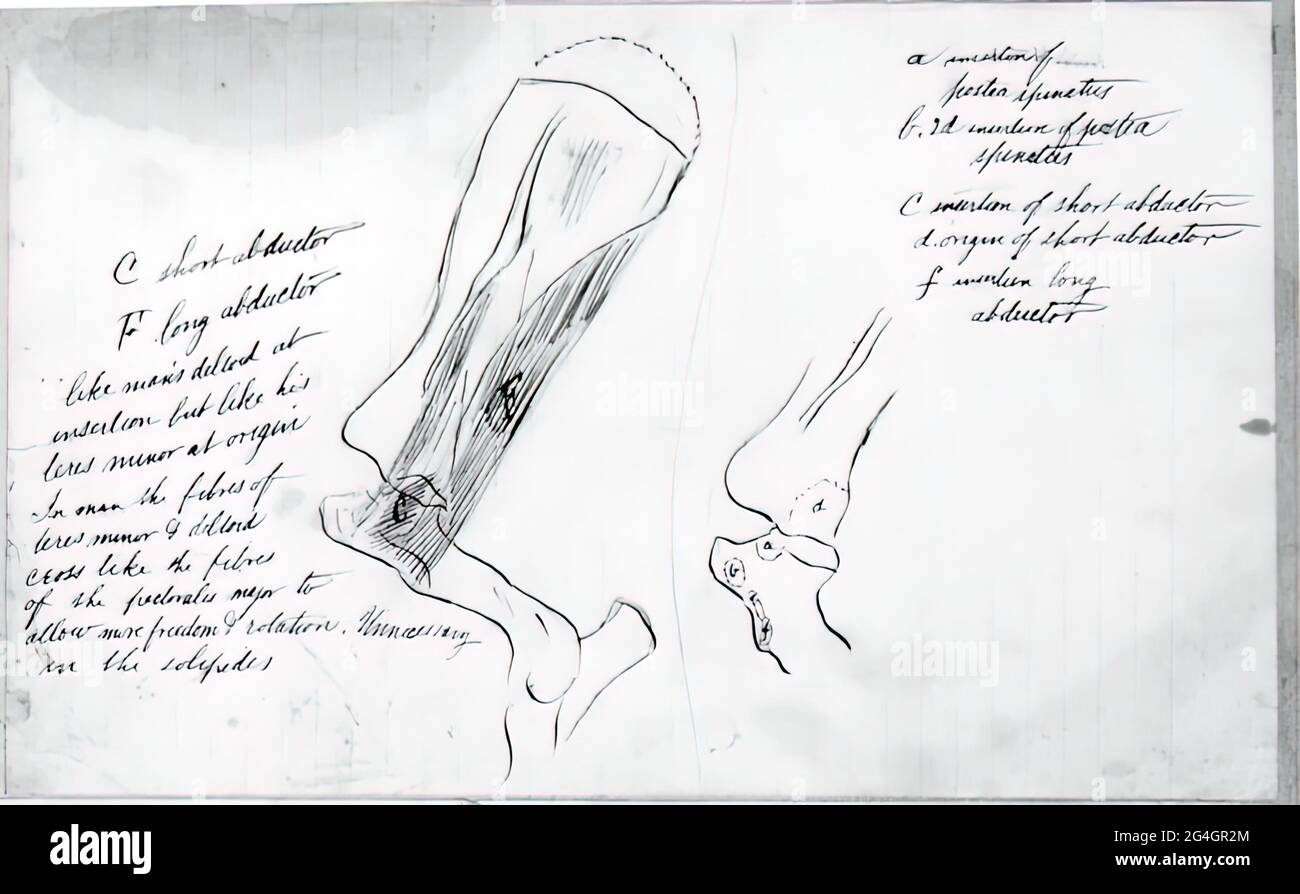 C short abductor
F long abductor
like man's deltoid at
insertion but like his
teres minor at origin
In man the fibres of
teres minor & deltoid
cross like the fibres
of the pectoralis major to
allow more freedom & rotation. Unnecessary
in the solipedes
F
C
a insertion of
postea spinatus
b. 2d insertion of postea
spinatus
C insertion of short abductor
d. origin of short abductor
f insertion long
abductor
d
a
b
c
f
alamy
alamy
alamy
alamy
alamy
a
alamy
Image ID: 2G4GR2M
www.alamy.com